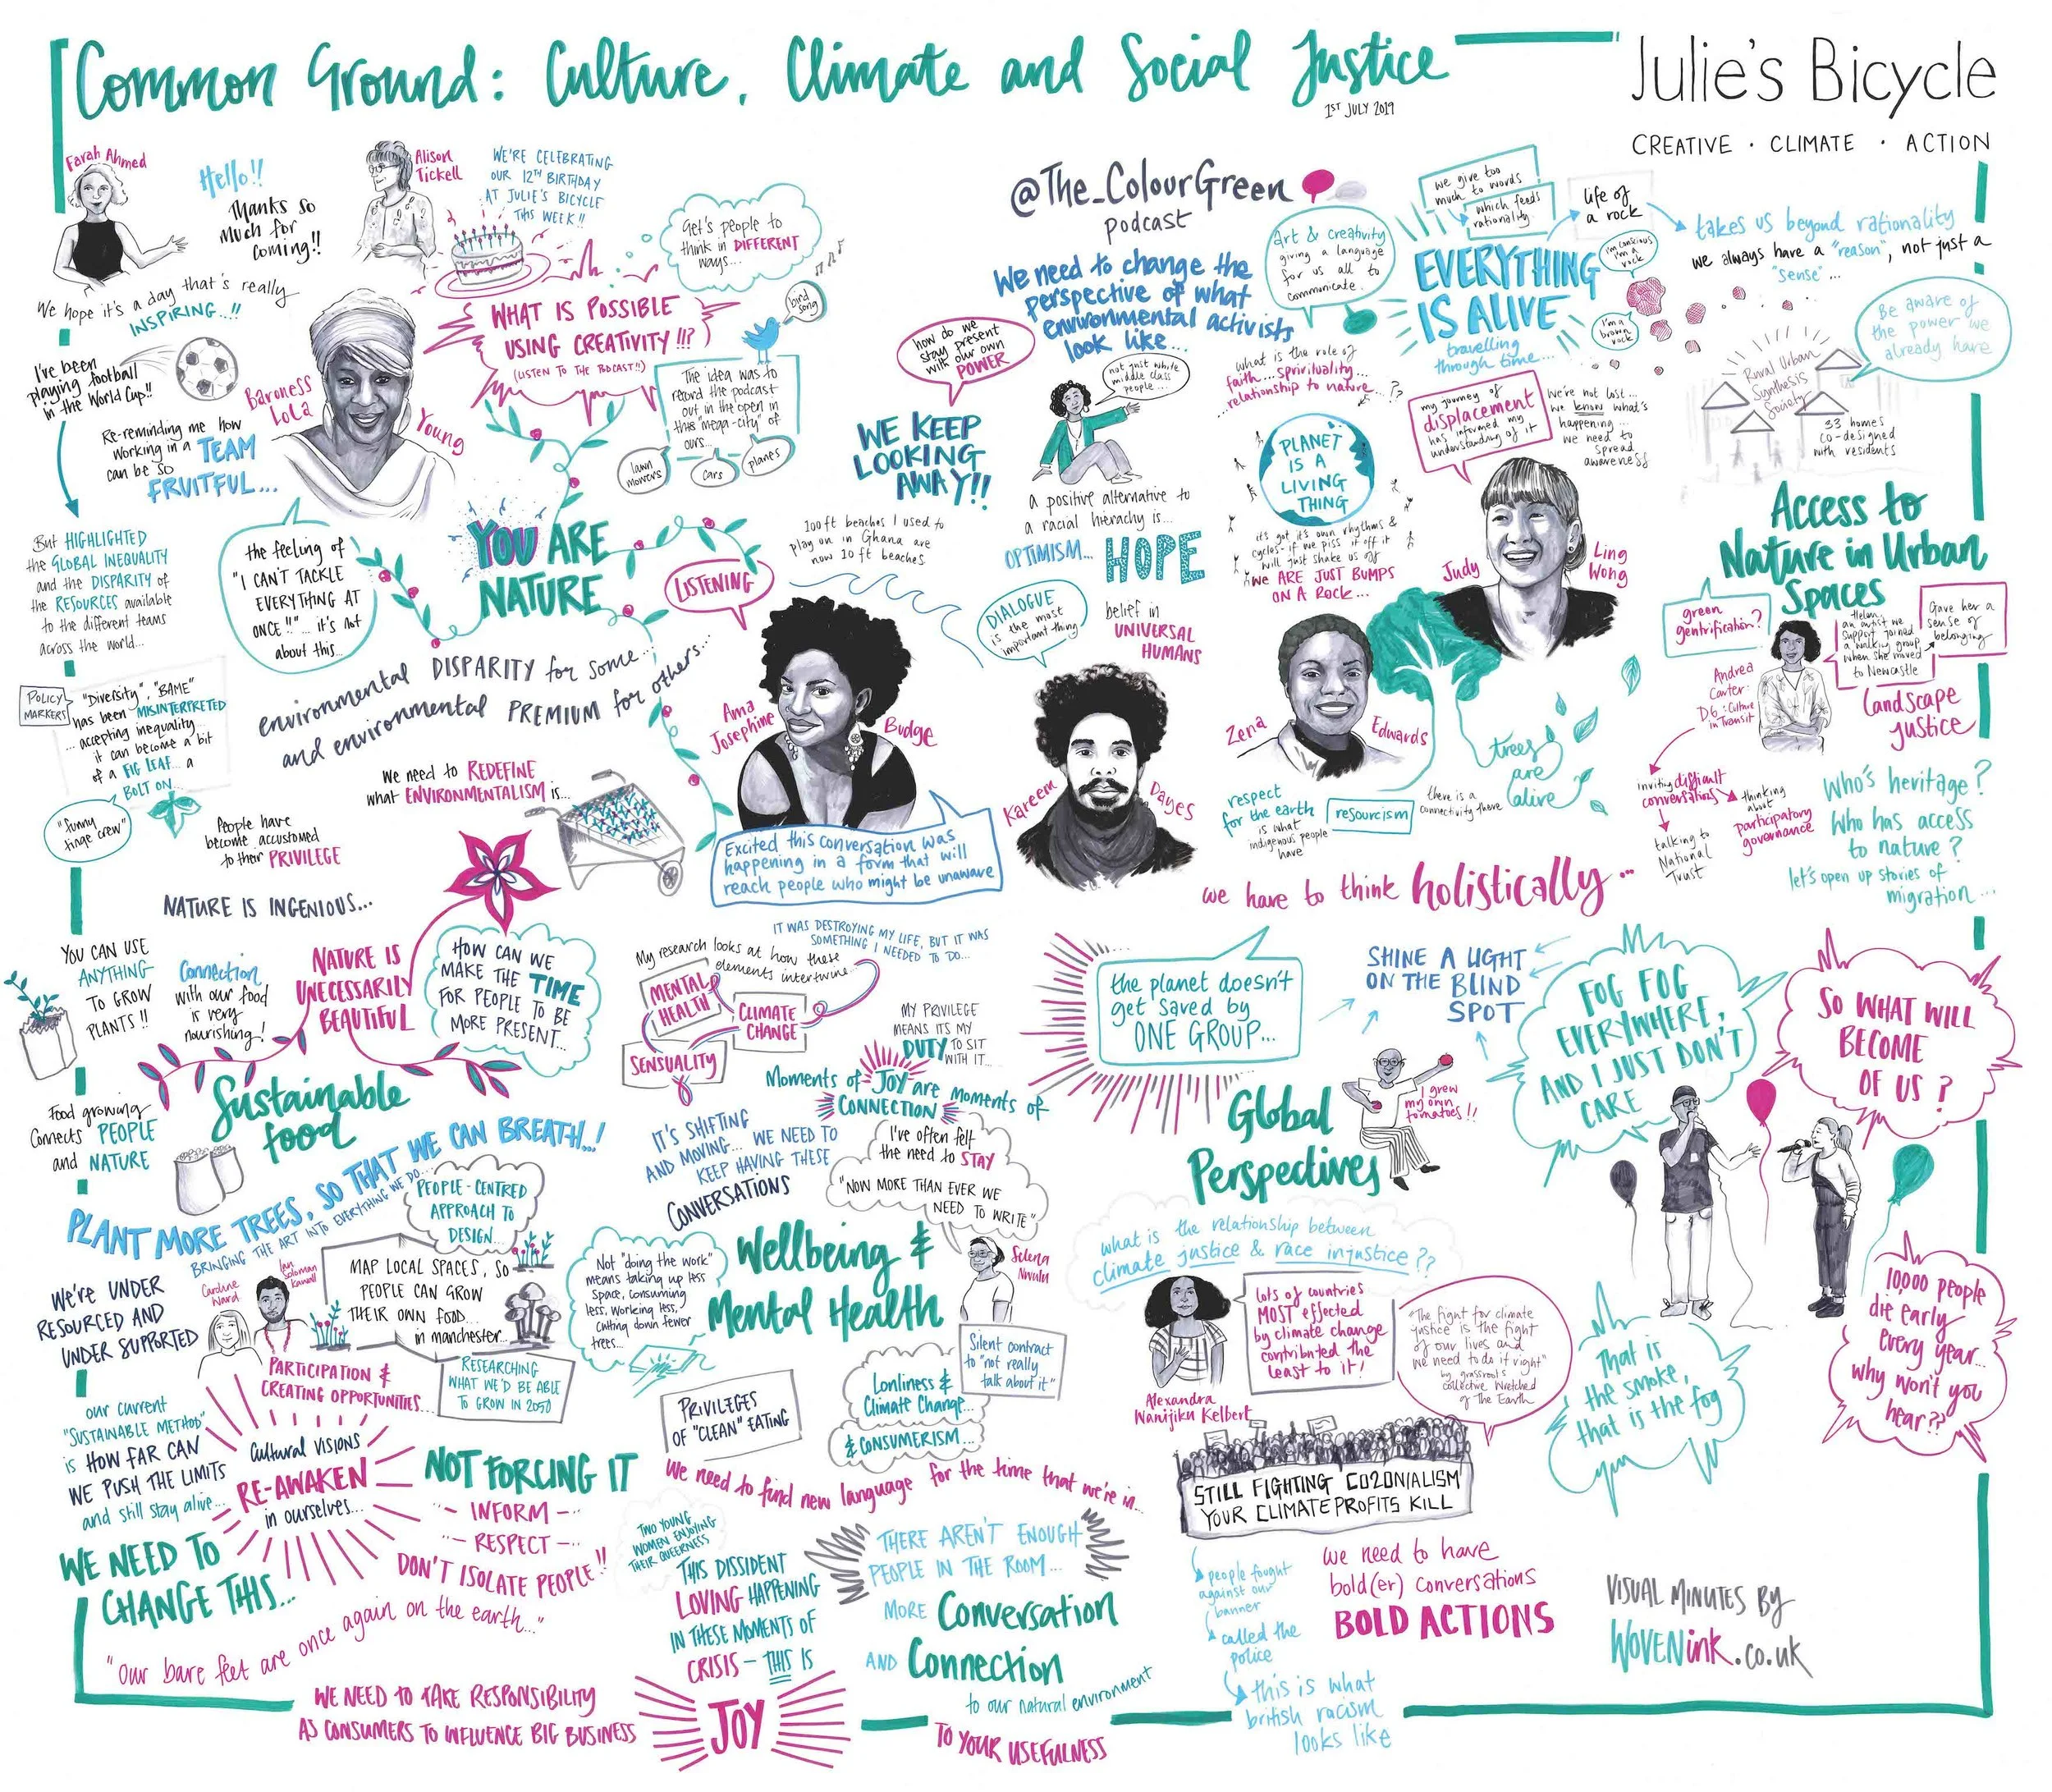 Common Ground: Culture, Climate and Social Justice
1ST JULY 2019
Julie's Bicycle
CREATIVE · CLIMATE · ACTION
Farah Ahmed
Hello!!
Thanks so
much for
coming!!
We hope it's a day that's really
INSPIRING...!!
Alison
Tickell
WE'RE CELEBRATING
OUR 12TH BIRTHDAY
AT JULIE'S BICYCLE
THIS WEEK!!
I've been
playing football
in the World Cup!!
Re-reminding me how
working in a TEAM
can be so
FRUITFUL...
But HIGHLIGHTED
the GLOBAL INEQUALITY
and the DISPARITY of
the RESOURCES available
to the different teams
across the world...
Baroness
Lola
Young
the feeling of
"I CAN'T TACKLE
EVERYTHING AT
ONCE!!"... it's not
about this...
POLICY
MARKERS
"Diversity", "BAME"
has been MISINTERPRETED
... accepting inequality
it can become a bit
of a FIG LEAF... a
BOLT ON...
"funny
tinge crew"
People have
become accustomed
to their PRIVILEGE
WHAT IS POSSIBLE
USING CREATIVITY!!?
(LISTEN TO THE PODCAST!!)
Get's people to
think in DIFFERENT
ways...
bird
song
The idea was to
record the podcast
out in the open in
this "mega-city" of
ours...
lawn
mowers
cars
planes
YOU ARE
NATURE
LISTENING
environmental DISPARITY for some...
and environmental PREMIUM for others...
we need to REDEFINE
what ENVIRONMENTALISM is...
@The_ColourGreen
podcast
We need to change the
perspective of what
environmental activists
look like...
how do we
stay present
with our own
POWER
not just white
middle class
people...
WE KEEP
LOOKING
AWAY!!
a positive alternative to
a racial hierachy is...
OPTIMISM... HOPE
100ft beaches I used to
play on in Ghana are
now 10ft beaches
DIALOGUE
is the most
important thing
belief in
UNIVERSAL
HUMANS
Ama
Josephine
Budge
Excited this conversation was
happening in a form that will
reach people who might be unaware
Kareem
Dayes
Art & creativity
giving a language
for us all to
communicate.
we give too
much to words
which feeds
rationality
life of
a rock
takes us beyond rationality
we always have a "reason", not just a
"sense"...
EVERYTHING
IS ALIVE
travelling
through time...
I'm conscious
I'm a
rock
I'm a
brown
rock
what is the role of
faith... spririuality...
relationship to nature...?
PLANET
IS A
LIVING
THING
it's got it's own rhythms &
cycles - if we piss it off it
will just shake us off
we ARE JUST BUMPS
ON A ROCK...
my journey of
displacement
has informed my
understanding of it
We're not lost...
we know what's
happening...
we need to
spread
awareness
Judy
Ling
Wong
Zena
Edwards
trees
are
alive
respect
for the earth
is what
indigenous people
have
resourcism
there is a
connectivity there
we have to think holistically...
Be aware of
the power we
already have
Rural Urban
Synthesis
Society
33 homes
co-designed
with residents
Access to
Nature in Urban
Spaces
green
gentrification?
Helen,
an artist we
support joined
a walking group
when she moved
to Newcastle
Gave her a
sense of
belonging
Andrea
Carter:
D6: Culture
in Transit
Landscape
Justice
inviting difficult
conversations
talking to
National
Trust
thinking
about
participatory
governance
Who's heritage?
Who has access
to nature?
let's open up stories of
migration...
NATURE IS INGENIOUS...
YOU CAN USE
ANYTHING
TO GROW
PLANTS!!
Connection
with our food
is very
nourishing!
NATURE IS
UNECESSARILY
BEAUTIFUL
HOW CAN WE
MAKE THE TIME
FOR PEOPLE TO BE
MORE PRESENT...
Food growing
connects PEOPLE
and NATURE
Sustainable
food
PLANT MORE TREES, SO THAT WE CAN BREATH..!
BRINGING THE ART INTO EVERYTHING WE DO...
PEOPLE-CENTRED
APPROACH TO
DESIGN...
We're UNDER
RESOURCED AND
UNDER SUPPORTED
Caroline
Ward
Ian
Soloman
Kawall
MAP LOCAL SPACES, SO
PEOPLE CAN GROW
THEIR OWN FOOD...
in manchester...
PARTICIPATION &
CREATING OPPORTUNITIES...
RESEARCHING
WHAT WE'D BE ABLE
TO GROW IN 2050
our current
"SUSTAINABLE METHOD"
is HOW FAR CAN
WE PUSH THE LIMITS
and still stay alive...
WE NEED TO
CHANGE THIS...
Cultural VISIONS
RE-AWAKEN
in ourselves...
NOT FORCING IT
INFORM
RESPECT
DON'T ISOLATE PEOPLE!!
"Our bare feet are once again on the earth..."
WE NEED TO TAKE RESPONSIBILITY
AS CONSUMERS TO INFLUENCE BIG BUSINESS
IT WAS DESTROYING MY LIFE, BUT IT WAS
SOMETHING I NEEDED TO DO...
My research looks at how these
elements intertwine...
MENTAL
HEALTH
CLIMATE
CHANGE
SENSUALITY
MY PRIVILEGE
MEANS ITS MY
DUTY TO SIT
WITH IT...
Moments of JOY are moments of
CONNECTION
IT'S SHIFTING
AND MOVING... WE NEED TO
KEEP HAVING THESE
CONVERSATIONS
I've often felt
the need to STAY
"NOW MORE THAN EVER WE
NEED TO WRITE"
Selena
Nwulu
Wellbeing &
Mental Health
Not "doing the work"
means taking up less
space, consuming
less, working less,
cutting down fewer
trees...
Silent contract
to "not really
talk about it"
PRIVILEGES
OF "CLEAN" EATING
Lonliness &
Climate Change...
& CONSUMERISM...
We need to find new language for the time that we're in...
TWO YOUNG
WOMEN ENJOYING
THEIR QUEERNESS
THIS DISSIDENT
LOVING HAPPENING
IN THESE MOMENTS OF
CRISIS - THIS IS
JOY
THERE AREN'T ENOUGH
PEOPLE IN THE ROOM...
MORE Conversation
AND Connection
to our natural environment
TO YOUR USEFULNESS
the planet doesn't
get saved by
ONE GROUP...
SHINE A LIGHT
ON THE BLIND
SPOT
Global
Perspectives
I grew
my own
tomatoes!!
what is the relationship between
climate justice & race injustice??
Alexandra
Wanjiku Kelbert
lots of countries
MOST effected
by climate change
contributed the
least to it!
"The fight for climate
justice is the fight
of our lives and
we need to do it right"
by grassroots
collective Wretched
of The Earth
STILL FIGHTING CO2ONIALISM
YOUR CLIMATE PROFITS KILL
people fought
against our
banner
called the
police
this is what
british racism
looks like
we need to have
bold(er) conversations
BOLD ACTIONS
FOG FOG
EVERYWHERE,
AND I JUST DON'T
CARE
SO WHAT WILL
BECOME
OF US?
That is
the smoke,
that is the fog
10,000 people
die early
every year...
why won't you
hear??
VISUAL MINUTES BY
WOVENink.co.uk